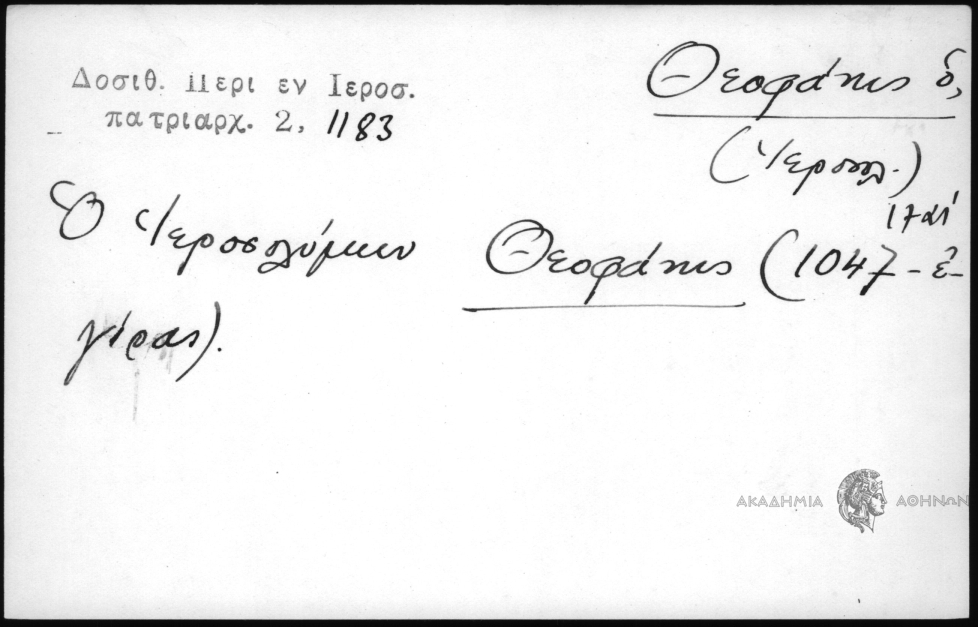 Δοσιθ. Περι εν Ιεροσ.
πατριαρχ. 2, 1183
Θεοφάνης ὁ,
(Ἱεροσολ.)
17 αἰ
Ὁ Ἱεροσολύμων Θεοφάνης (1047 - ἐ-
γίρας).
ΑΚΑΔΗΜΙΑ ΑΘΗΝΩΝ